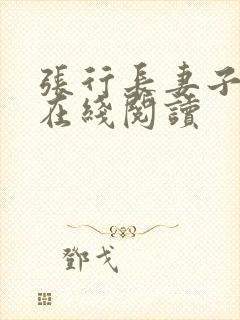 張行長妻子
在綫閱讀
鄧戈